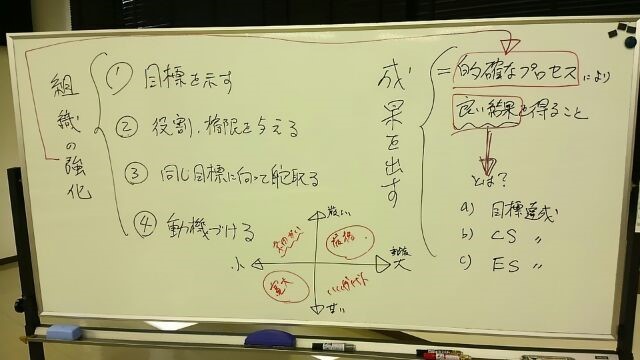 組織の強化
① 目標を示す
② 役割、権限を与える
③ 同じ目標に向って舵取る
④ 動機づける
成果を出す
=的確なプロセスにより
良い結果を得ること
とは?
a) 目標達成
b) CS 〃
c) ES 〃
厳しい
小
大
寛大
甘い